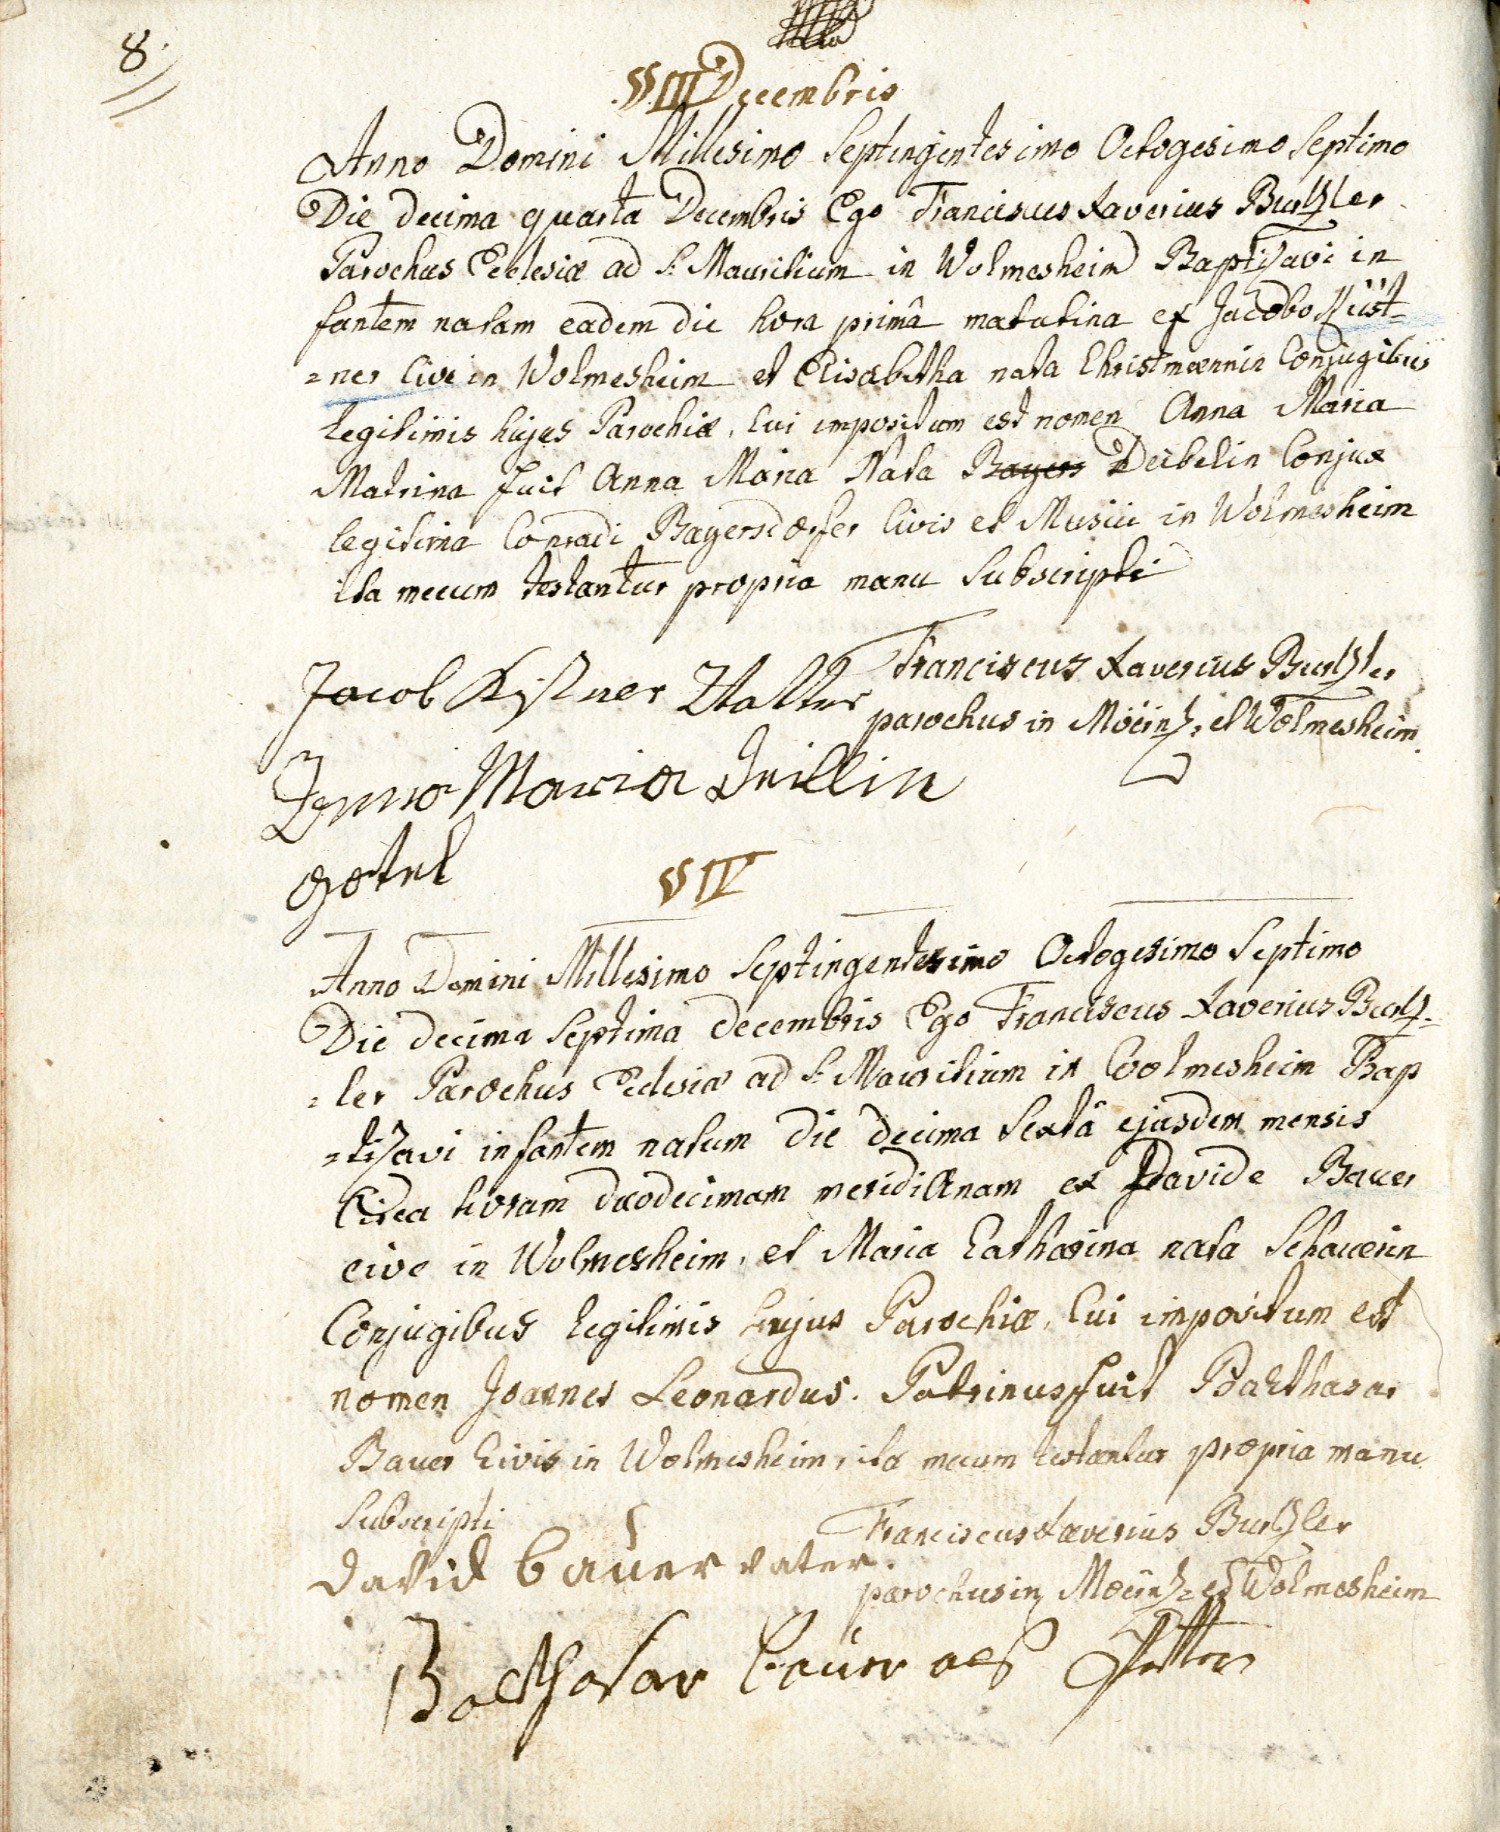 8.
VIII Decembris
Anno Domini Millesimo Septingentesimo Octogesimo Septimo
Die decima quarta Decembris Ego Franciscus Xaverius Burtzler
Parochus Ecclesiæ ad S: Mauritium in Wolmesheim Baptizavi in
fantem natam eadem die hora primâ matutina ex Jacobo Küst-
=ner Cive in Wolmesheim et Elisabetha nata Christmannin Conjugibus
legitimis hujus Parochiæ, Cui impositum est nomen Anna Maria
Matrina fuit Anna Maria Nata Bayers Deibelin Conjux
legitima Conradi Bayersdoerfer Civis et Musici in Wolmesheim
ita mecum testantur propria manu Subscripti
Franciscus Xaverius Burtzler
Jacob Kistner Vatter
parochus in Moërtz, et Wolmesheim.
Anna Maria
gotel
VIV
Anno Domini Millesimo Septingentesimo Octogesimo Septimo
Die decima Septima decembris Ego Franciscus Xaverius Burtz-
=ler Parochus Eclesiæ ad S: Mauritium in Woolmesheim Bap
=tizavi infantem natum die decima Sextâ ejusdem mensis
Circa horam duodecimam meridianam ex Davide Bauer
cive in Wolmesheim, et Maria Catharina nata Schauerin
Conjugibus legitimis hujus Parochiæ, Cui impositum est
nomen Joannes Leonardus. Patrinus fuit Balthasar
Bauer Civis in Wolmesheim, ita mecum testantur propria manu
Subscripti
Franciscus Xaverius Burtzler
david bauer vater.
parochus in Moërtz et Wolmesheim
Balthasar bauer als Petter